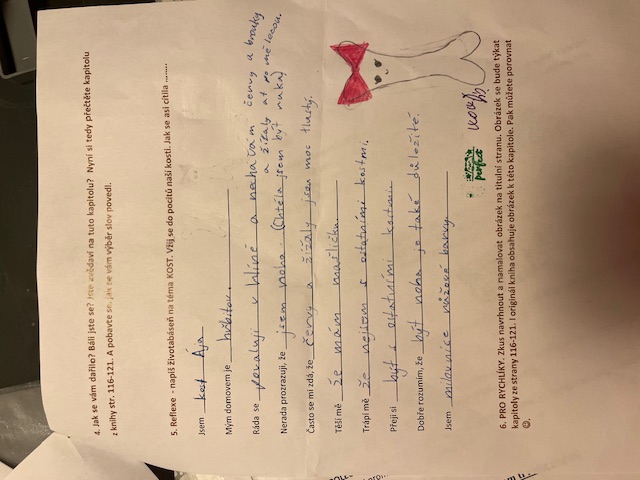 4. Jak se vám dařilo? Báli jste se? Jste zvědaví na tuto kapitolu? Nyní si tedy přečtěte kapitolu
z knihy str. 116-121. A pobavte se, jak se vám výběr slov povedl.
5. Reflexe - napiš životabáseň na téma KOST. Vžij se do pocitů naší kosti. Jak se asi cítila ........
Jsem kost Ája
Mým domovem je hřbitov.
Ráda se povaluji v hlíně a nechávám červy a brouky
a žížaly ať po mě lezou.
Nerada prozrazuji, že jsem noha. (Chtěla jsem být ruka)
Často se mi zdá, že červy a žížaly jsou moc tlustý.
Těší mě že mám mašličku.
Trápí mě že nejsem s ostatními kostmi.
Přeji si být s ostatními kostmi.
Dobře rozumím, že být noha je také důležité.
Jsem milovnice růžové barvy.
perfect
6. PRO RYCHLÍKY. Zkus navrhnout a namalovat obrázek na titulní stranu. Obrázek se bude týkat
kapitoly ze strany 116-121. I originál kniha obsahuje obrázek k této kapitole. Pak můžete porovnat
☺.